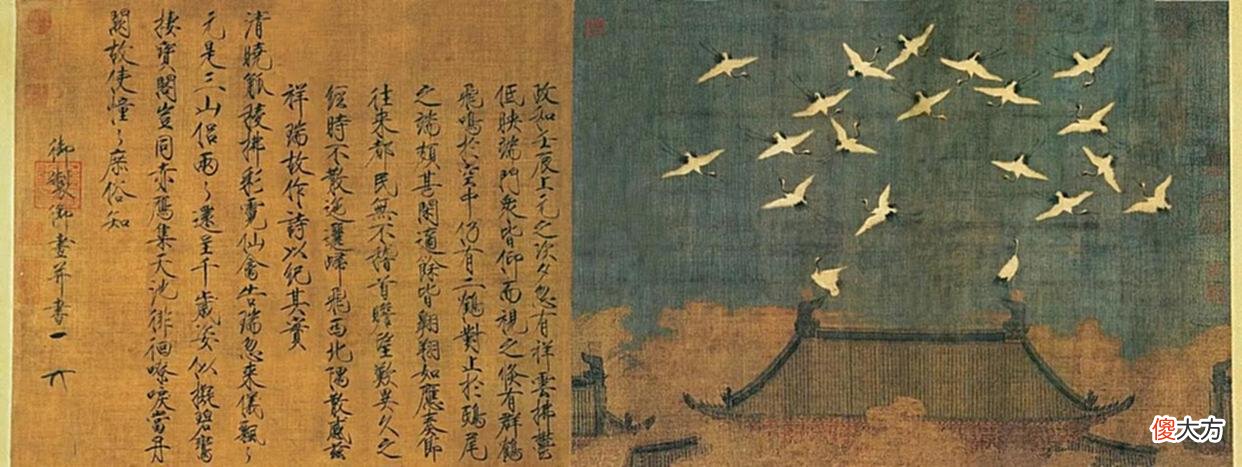 政和壬辰上元之次夕忽有祥雲拂鬱
低映端門眾皆仰而視之倏有群鶴
飛鳴於空中仍有二鶴對止於鴟尾
之端頗甚閒適餘皆翱翔如應奏節
往來都民無不稽首瞻望歎異久之
經時不散迤邐歸飛西北隅散感茲
祥瑞故作詩以紀其實
清曉觚稜拂彩霓仙禽告瑞忽來儀飄々
元是三山侶兩々還呈千歲姿似擬碧鸞
棲寶閣豈同赤鴈集天池徘徊嘹唳當丹
闕故使憧々庶俗知
御製御畫并書
傻大方